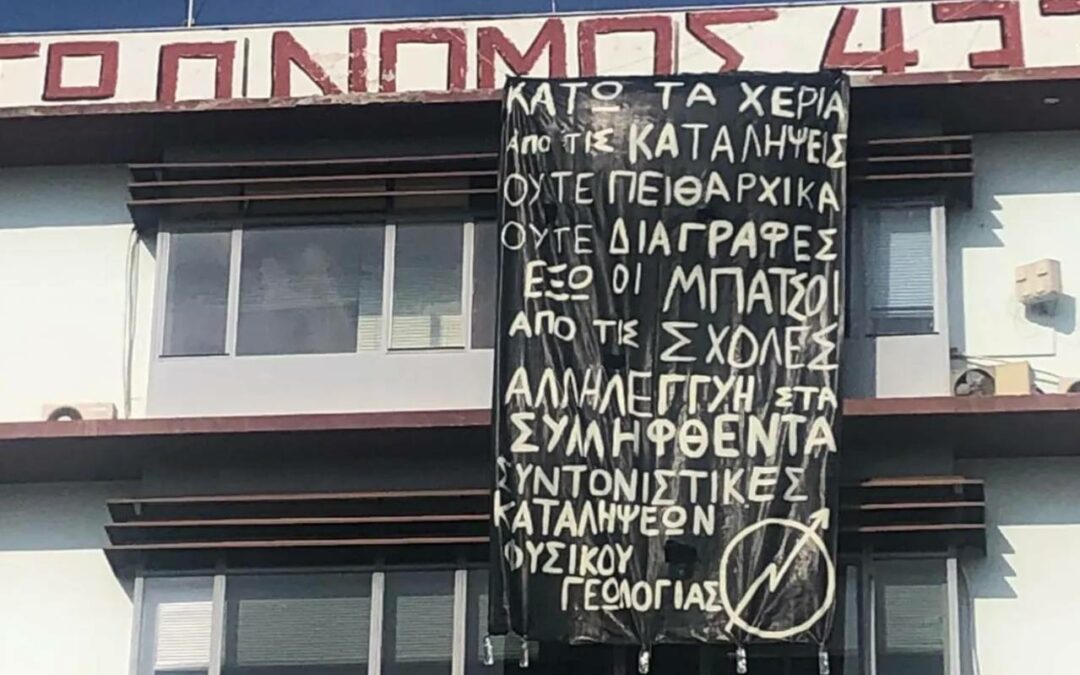 Ο ΝΟΜΟΣ
ΚΑΤΩ ΤΑ ΧΕΡΙΑ
ΑΠΟ ΤΙΣ ΚΑΤΑΛΗΨΕΙΣ
ΟΥΤΕ ΠΕΙΘΑΡΧΙΚΑ
ΟΥΤΕ ΔΙΑΓΡΑΦΕΣ
ΕΞΩ ΟΙ ΜΠΑΤΣΟΙ
ΑΠΟ ΤΙΣ ΣΧΟΛΕΣ
ΑΛΛΗΛΕΓΓΥΗ ΣΤΑ
ΣΥΛΛΗΦΘΕΝΤΑ
ΣΥΝΤΟΝΙΣΤΙΚΕΣ
ΚΑΤΑΛΗΨΕΩΝ
ΦΥΣΙΚΟΥ
ΓΕΩΛΟΓΙΑΣ